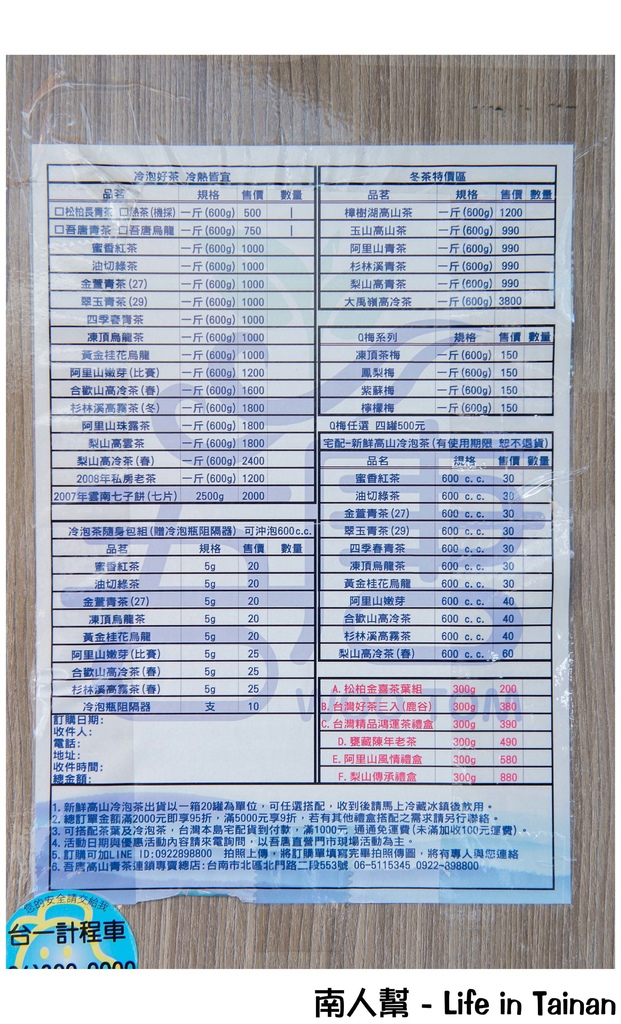 冷泡好茶 冷熱皆宜
品茗 規格 售價 數量
□松柏長青茶 □熟茶(機採) 一斤(600g) 500
□吾唐青茶 □吾唐烏龍 一斤(600g) 750
蜜香紅茶 一斤(600g) 1000
油切綠茶 一斤(600g) 1000
金萱青茶(27) 一斤(600g) 1000
翠玉青茶(29) 一斤(600g) 1000
四季春青茶 一斤(600g) 1000
凍頂烏龍茶 一斤(600g) 1000
黃金桂花烏龍 一斤(600g) 1000
阿里山嫩芽(比賽) 一斤(600g) 1200
合歡山高冷茶(春) 一斤(600g) 1600
杉林溪高霧茶(冬) 一斤(600g) 1800
阿里山珠露茶 一斤(600g) 1800
梨山高雲茶 一斤(600g) 1800
梨山高冷茶(春) 一斤(600g) 2400
2008年私房老茶 一斤(600g) 1200
2007年雲南七子餅(七片) 2500g 2000
冷泡茶隨身包組(贈冷泡瓶阻隔器) 可沖泡600c.c.
品茗 規格 售價 數量
蜜香紅茶 5g 20
油切綠茶 5g 20
金萱青茶(27) 5g 20
凍頂烏龍茶 5g 20
黃金桂花烏龍 5g 20
阿里山嫩芽(比賽) 5g 25
合歡山高冷茶(春) 5g 25
杉林溪高霧茶(春) 5g 25
冷泡瓶阻隔器 支 10
訂購日期:
收件人:
電話:
地址:
收件時間:
總金額:
冬茶特價區
品茗 規格 售價 數量
樟樹湖高山茶 一斤(600g) 1200
玉山高山茶 一斤(600g) 990
阿里山青茶 一斤(600g) 990
杉林溪青茶 一斤(600g) 990
梨山高青茶 一斤(600g) 990
大禹嶺高冷茶 一斤(600g) 3800
Q梅系列 規格 售價 數量
凍頂茶梅 一斤(600g) 150
鳳梨梅 一斤(600g) 150
紫蘇梅 一斤(600g) 150
檸檬梅 一斤(600g) 150
Q梅任選 四罐500元
宅配-新鮮高山冷泡茶(有使用期限 恕不退貨)
品名 規格 售價 數量
蜜香紅茶 600 c.c. 30
油切綠茶 600 c.c. 30
金萱青茶(27) 600 c.c. 30
翠玉青茶(29) 600 c.c. 30
四季春青茶 600 c.c. 30
凍頂烏龍茶 600 c.c. 30
黃金桂花烏龍 600 c.c. 30
阿里山嫩芽 600 c.c. 40
合歡山高冷茶 600 c.c. 40
杉林溪高霧茶 600 c.c. 40
梨山高冷茶(春) 600 c.c. 60
A.松柏金喜茶葉組 300g 200
B.台灣好茶三入(鹿谷) 300g 380
C.台灣精品鴻運茶禮盒 300g 390
D.甕藏陳年老茶 300g 490
E.阿里山風情禮盒 300g 580
F.梨山傳承禮盒 300g 880
1.新鮮高山冷泡茶出貨以一箱20罐為單位，可任選搭配，收到後請馬上冷藏冰鎮後飲用。
2.總訂單金額滿2000元即享95折，滿5000元享9折，若有其他禮盒搭配之需求請另行聯絡。
3.可搭配茶葉及冷泡茶，台灣本島宅配貨到付款，滿1000元 通通免運費(未滿加收100元運費)。
4.活動日期與優惠活動內容請來電詢問，以吾唐直營門市現場活動為主。
5.訂購可加LINE ID:0922898800 拍照上傳，將訂購單填寫完畢拍照傳圖，將有專人與您連絡
6.吾唐高山青茶連鎖專賣總店:台南市北區北門路二段553號 06-5115345 0922-398800
您的安全請交給我
台一計程車
南人幫 - Life in Tainan